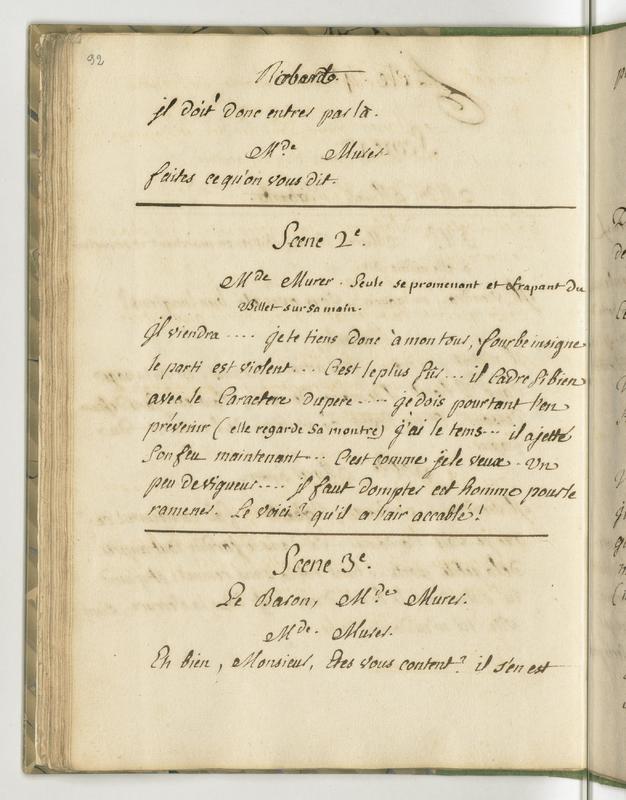 92
Robert.
il doit donc entrer par la.
Mde Murer.
faites ce qu'on vous dit.
Scene 2e.
Mde Murer. Seule se promenant et frapant du
Billet sur sa main.
Il viendra .... je te tiens donc à mon tour, fourbe insigne
le parti est violent... C'est le plus sûr... il Cadre si bien
avec le Caractere du pere .... je dois pourtant l'en
prévenir (elle regarde sa montre) j'ai le tems... il a jetté
Son feu maintenant... C'est comme je le veux. Un
peu de vigueur.... il faut dompter cet homme pour le
ramener. Le voici? qu'il a l'air accablé!
Scene 3e.
Le Baron, Mde Murer.
Mde. Murer.
Eh bien, Monsieur, Etes vous content? il s'en est